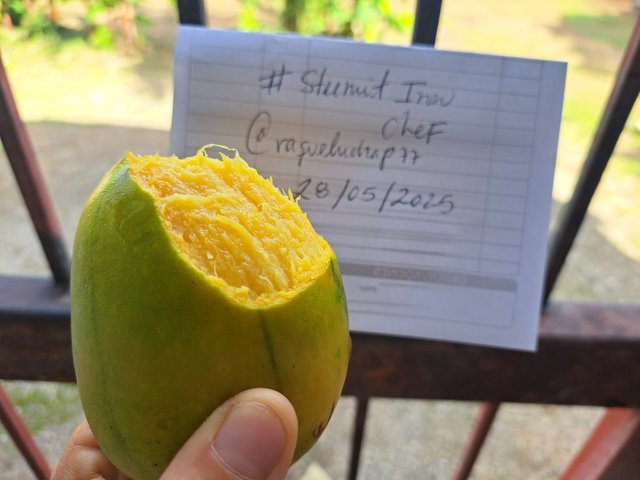 # Steemit Inou
Chef
@raqueluchap77
28/05/2025